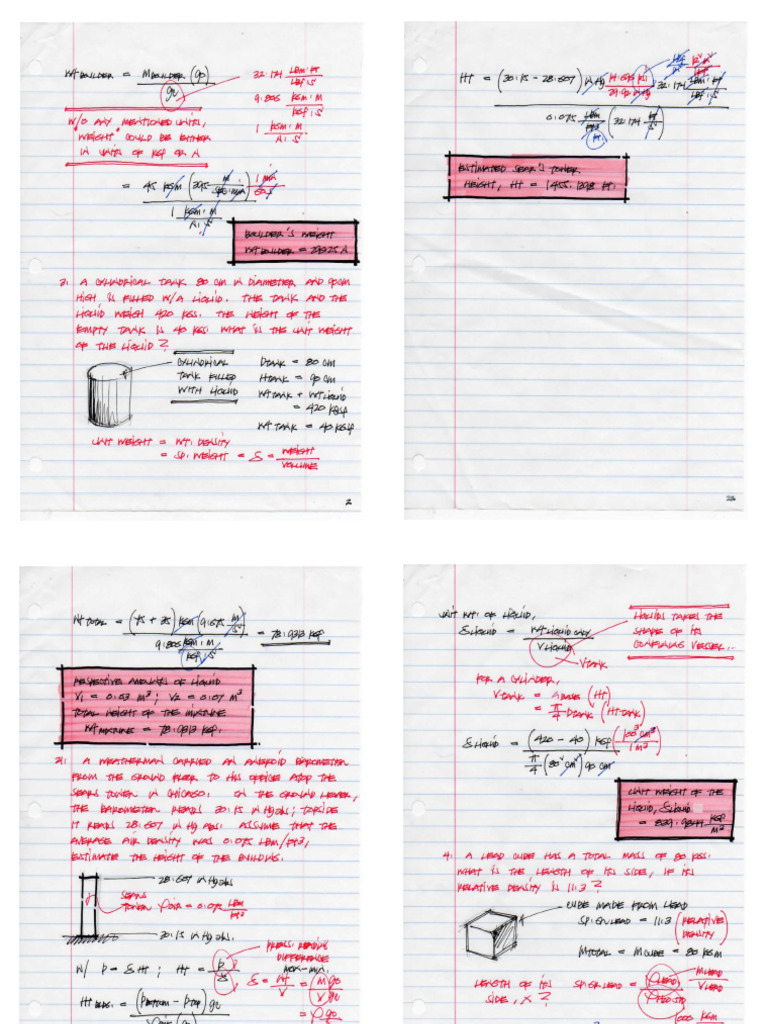 WT BOULDER = M BOULDER (go) / gc
32.174 LBM·FT / LBF·S²
9.806 KGM·M / KGF·S²
1 KGM·M / N·S²
W/O ANY MENTIONED UNITS,
"WEIGHT" COULD BE EITHER
IN UNITS OF KGF OR N
1 KGM·M / N·S²
BOULDER'S WEIGHT
3. A CYLINDRICAL TANK 80 CM IN DIAMETER AND 90CM
HIGH IS FILLED W/A LIQUID. THE TANK AND THE
LIQUID WEIGH 420 KGS. THE WEIGHT OF THE
EMPTY TANK IS 40 KGS. WHAT IS THE UNIT WEIGHT
OF THE LIQUID?
CYLINDRICAL
TANK FILLED
WITH LIQUID
DTANK = 80 CM
HTANK = 90 CM
WT TANK + WT LIQUID
= 420 KGF
WT TANK = 40 KGF
UNIT WEIGHT = WT. DENSITY
= SP. WEIGHT = δ = WEIGHT / VOLUME
2
HT = (30.15 - 28.607) IN HG
0.075 LBM / FT³ (32.174 FT / S²)
ESTIMATED SEAR'S TOWER
HEIGHT, HT = 1455.1298 FT.
WT TOTAL = (45 + 35) KGM (9.675 M / S²) / 9.806 KGM·M / KGF·S² = 78.9313 KGF
RESPECTIVE AMOUNTS OF LIQUID
V1 = 0.03 M³; V2 = 0.07 M³
TOTAL WEIGHT OF THE MIXTURE
WT MIXTURE = 78.9313 KGF.
31. A WEATHERMAN CARRIED AN ANEROID BAROMETER
FROM THE GROUND FLOOR TO HIS OFFICE ATOP THE
SEARS TOWER IN CHICAGO. ON THE GROUND LEVEL,
THE BAROMETER READS 30.15 IN HG ABS; TOPSIDE
IT READS 28.607 IN HG ABS. ASSUME THAT THE
AVERAGE AIR DENSITY WAS 0.075 LBM/FT3,
ESTIMATE THE HEIGHT OF THE BUILDING.
28.607 IN HG ABS
SEARS
TOWER ρAIR = 0.075 LBM / FT³
30.15 IN HG ABS.
PRESS. READING
DIFFERENCE
MAX-MIN.
W/ P = δ HT; HT = P / δ, δ = WT / V = M go / V gc
= ρ go
HT BLDG. = (P BOTTOM - P TOP) gc
UNIT WT. OF LIQUID,
δ LIQUID = WT LIQUID ONLY / V LIQUID
V TANK
LIQUIDS TAKES THE
SHAPE OF ITS
CONFINING VESSEL..
FOR A CYLINDER,
V TANK = A BASE (HT)
= π/4 D TANK² (HT TANK)
δ LIQUID = (420 - 40) KGF (100³ CM³ / 1 M³) / π/4 (80² CM²) 90 CM
UNIT WEIGHT OF THE
LIQUID, δ LIQUID
4. A LEAD CUBE HAS A TOTAL MASS OF 80 KGS.
WHAT IS THE LENGTH OF ITS SIDE, IF ITS
RELATIVE DENSITY IS 11.3?
CUBE MADE FROM LEAD
SP. GR LEAD = 11.3 (RELATIVE DENSITY)
M TOTAL = M CUBE = 80 KGM
LENGTH OF ITS
SIDE, X?
SP. GR LEAD = ρ LEAD / ρ H2O STD
M LEAD / V LEAD